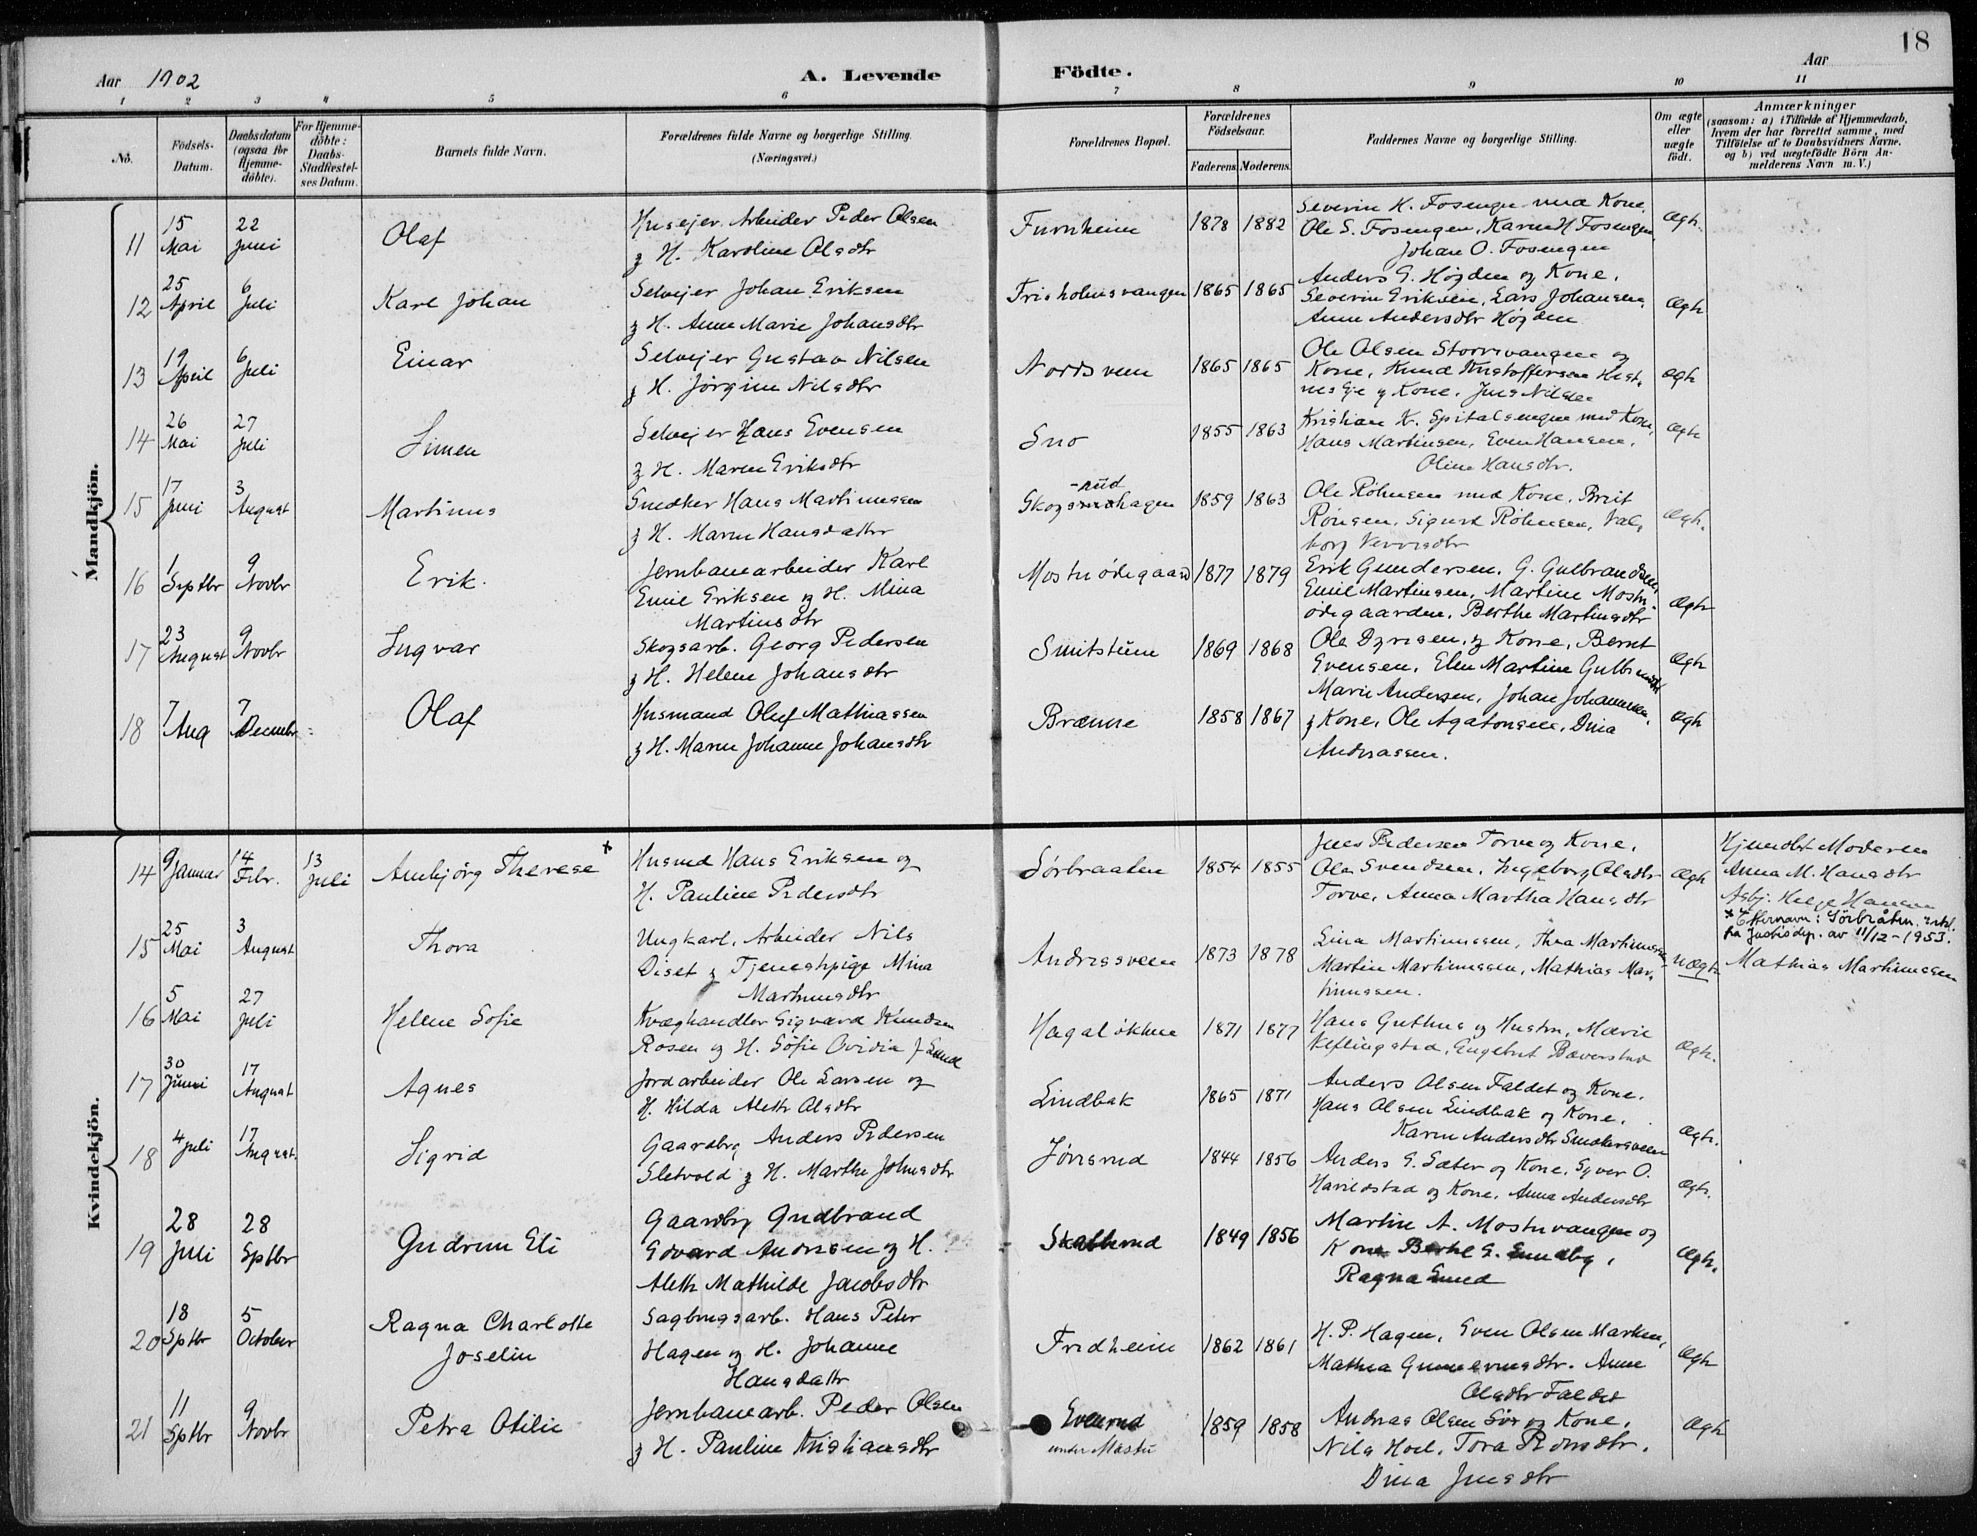 18
Aar 1902 A. Levende Födte. Aar
1 2 3 4 5 6 7 8 9 10 11
No. Födsels-Datum. Daabsdatum (ogsaa for Hjemmedöbte). For Hjemmedöbte: Daabs-Stadfæstelses Datum. Barnets fulde Navn. Forældrenes fulde Navne og borgerlige Stilling. (Næringsvei.) Forældrenes Bopæl. Forældrenes Födselsaar. Faderens. Moderens. Faddernes Navne og borgerlige Stilling. Om ægte eller uægte födt. Anmærkninger (saasom: a) i Tilfælde af Hjemmedaab, hvem der har forrettet samme, med Tilföielse af to Daabsvidners Navne. og b) ved uægtefödte Börn Anmelderens Navn m. V.)
Mandkjön.
11 15 Mai 22 Juni Olaf Husejer, Arbeider Peder Olsen Furuheim 1878 1882 Severin H. Fosengen med Kone, Ægte.
g H. Karoline Olsdtr Ole S. Fosengen, Karen H Fosengen,
Johan O. Fosengen
12 25 April 6 Juli Karl Johan Selvejer Johan Eriksen Frisholmsvangen 1865 1865 Anders G. Højden og Kone, Ægte
g H. Anne Marie Johansdtr Severin Eriksen, Lars Johansen,
Anne Andersdtr Højden
13 19 April 6 Juli Einar Selvejer Gustav Nilsen Nordsveen 1865 1865 Ole Olsen Storrvangen og Ægte
g H. Jørgine Nilsdtr Kone, Knud Kristoffersen
Kone, Jens Nilsen
14 26 Mai 27 Juli Simen Selvejer Hans Evensen Sno 1855 1863 Kristian K. Spitalsengen med Kone, Ægte
g H. Maren Eriksdtr Hans Martinsen, Even Hansen,
Oline Hansdtr.
15 17 Juni 3 August Martinus Snedker Hans Martinussen Skogsrudhagen 1859 1863 Ole Röhnsen med Kone, Berit Ægte.
g H. Maren Hansdatter Rönsen, Sigurd Röhnsen, Val-
borg
16 1 Septbr 9 Novbr Erik. Jernbanearbeider Karl Mostuødegaard 1877 1879 Erik Gundersen, G. Gulbrandsen, Ægte
Emil Eriksen og H. Mina Emil Martinsen, Martine Mostu-
Martinsdtr ødegaarden, Berthe Martinsdtr
17 23 August 9 Novbr Ingvar Skogsarb. Georg Pedersen Smitstuen 1869 1868 Ole Dyresen, g Kone, Bernt Ægte
g H. Helene Johansdtr Evensen, Elen Martine Gulbrandsd
18 7 Aug 7 Decembr Olaf Husmand Oluf Mathiassen Brænne 1858 1867 Marie Andersen, Johan Johannesen, Ægte
g H. Maren Johanne Johansdtr g Kone, Ole Agatonsen, Dina
Andreassen.
Kvindekjön.
14 9 Januar 14 Febr. 13 Juli Arnbjörg Therese x Husmd Hans Eriksen og Sörbraaten 1854 1855 Jens Pedersen Torve og Kone, Ægte Hjemdbt Moderen
H. Pauline Pedersdtr Ole Svendsen, Ingeborg Olsdtr Anna M. Hansdtr
Torve, Anna Martha Hansdtr Asbj. Helge Hansen
x Efternavn: Sörbråten. erkl.
fra Justisdep. av 11/12-1953.
15 25 Mai 3 August Thora Ungkarl, Arbeider Nils Andreasveen 1873 1878 Lina Martinussen, Thea Martinussen uægte Mathias Martinussen
Diset g Tjenestpige Mina Martin Martinussen, Mathias Mar-
Martinusdtr tinussen.
16 5 Mai 27 Juli Helene Sofie Kvæghandler Sigvard Knudsen Hagaløkken 1871 1877 Hans Guthus og Hustru, Marie Ægte.
Rosen og H. Sofie Ovidia f. Lund Keflingstad, Engebret Bæverstad
17 30 Juni 17 August Agnes Jordarbeider Ole Larsen og Lindbak 1865 1871 Anders Olsen Faldet og Kone, Ægte.
H. Hilda Alette Olsdtr Hans Olsen Lindbak og Kone,
Karen Andersdtr Snekersveen
18 4 Juli 17 August. Sigrid Gaardbrg Anders Pedersen Jönsrud 1844 1856 Anders G. Sæter og Kone, Syver O. Ægte.
Sletvold g H. Marthe Johnsdtr Harildstad og Kone, Anna Andersdtr
19 28 Juli 28 Septbr Gudrun Eli Gaardbrg Gudbrand Skattrud 1849 1856 Martin A. Mostuvangen og Ægte.
Edvard Andresen og H. Kone Berthe G. Sundby,
Alette Mathilde Jacobsdtr Ragna Lund
20 18 Septbr 5 October Ragna Charlotte Sagbrugsarb. Hans Peter Fredheim 1862 1861 H. P. Hagen, Even Olsen Marken, Ægte
Joselin Hagen og H. Johanne Mathea Gunnerusdtr. Anne
Hansdatter Olsdtr Faldet
21 11 Septbr 9 Novbr Petra Otilie Jernbanearb. Peder Olsen Evenrud 1859 1858 Andreas Olsen Sör og Kone, Ægte
g H. Pauline Kristiansdtr under Mostu Nils Hoel, Tora Pedersdtr.
Dina Jensdtr